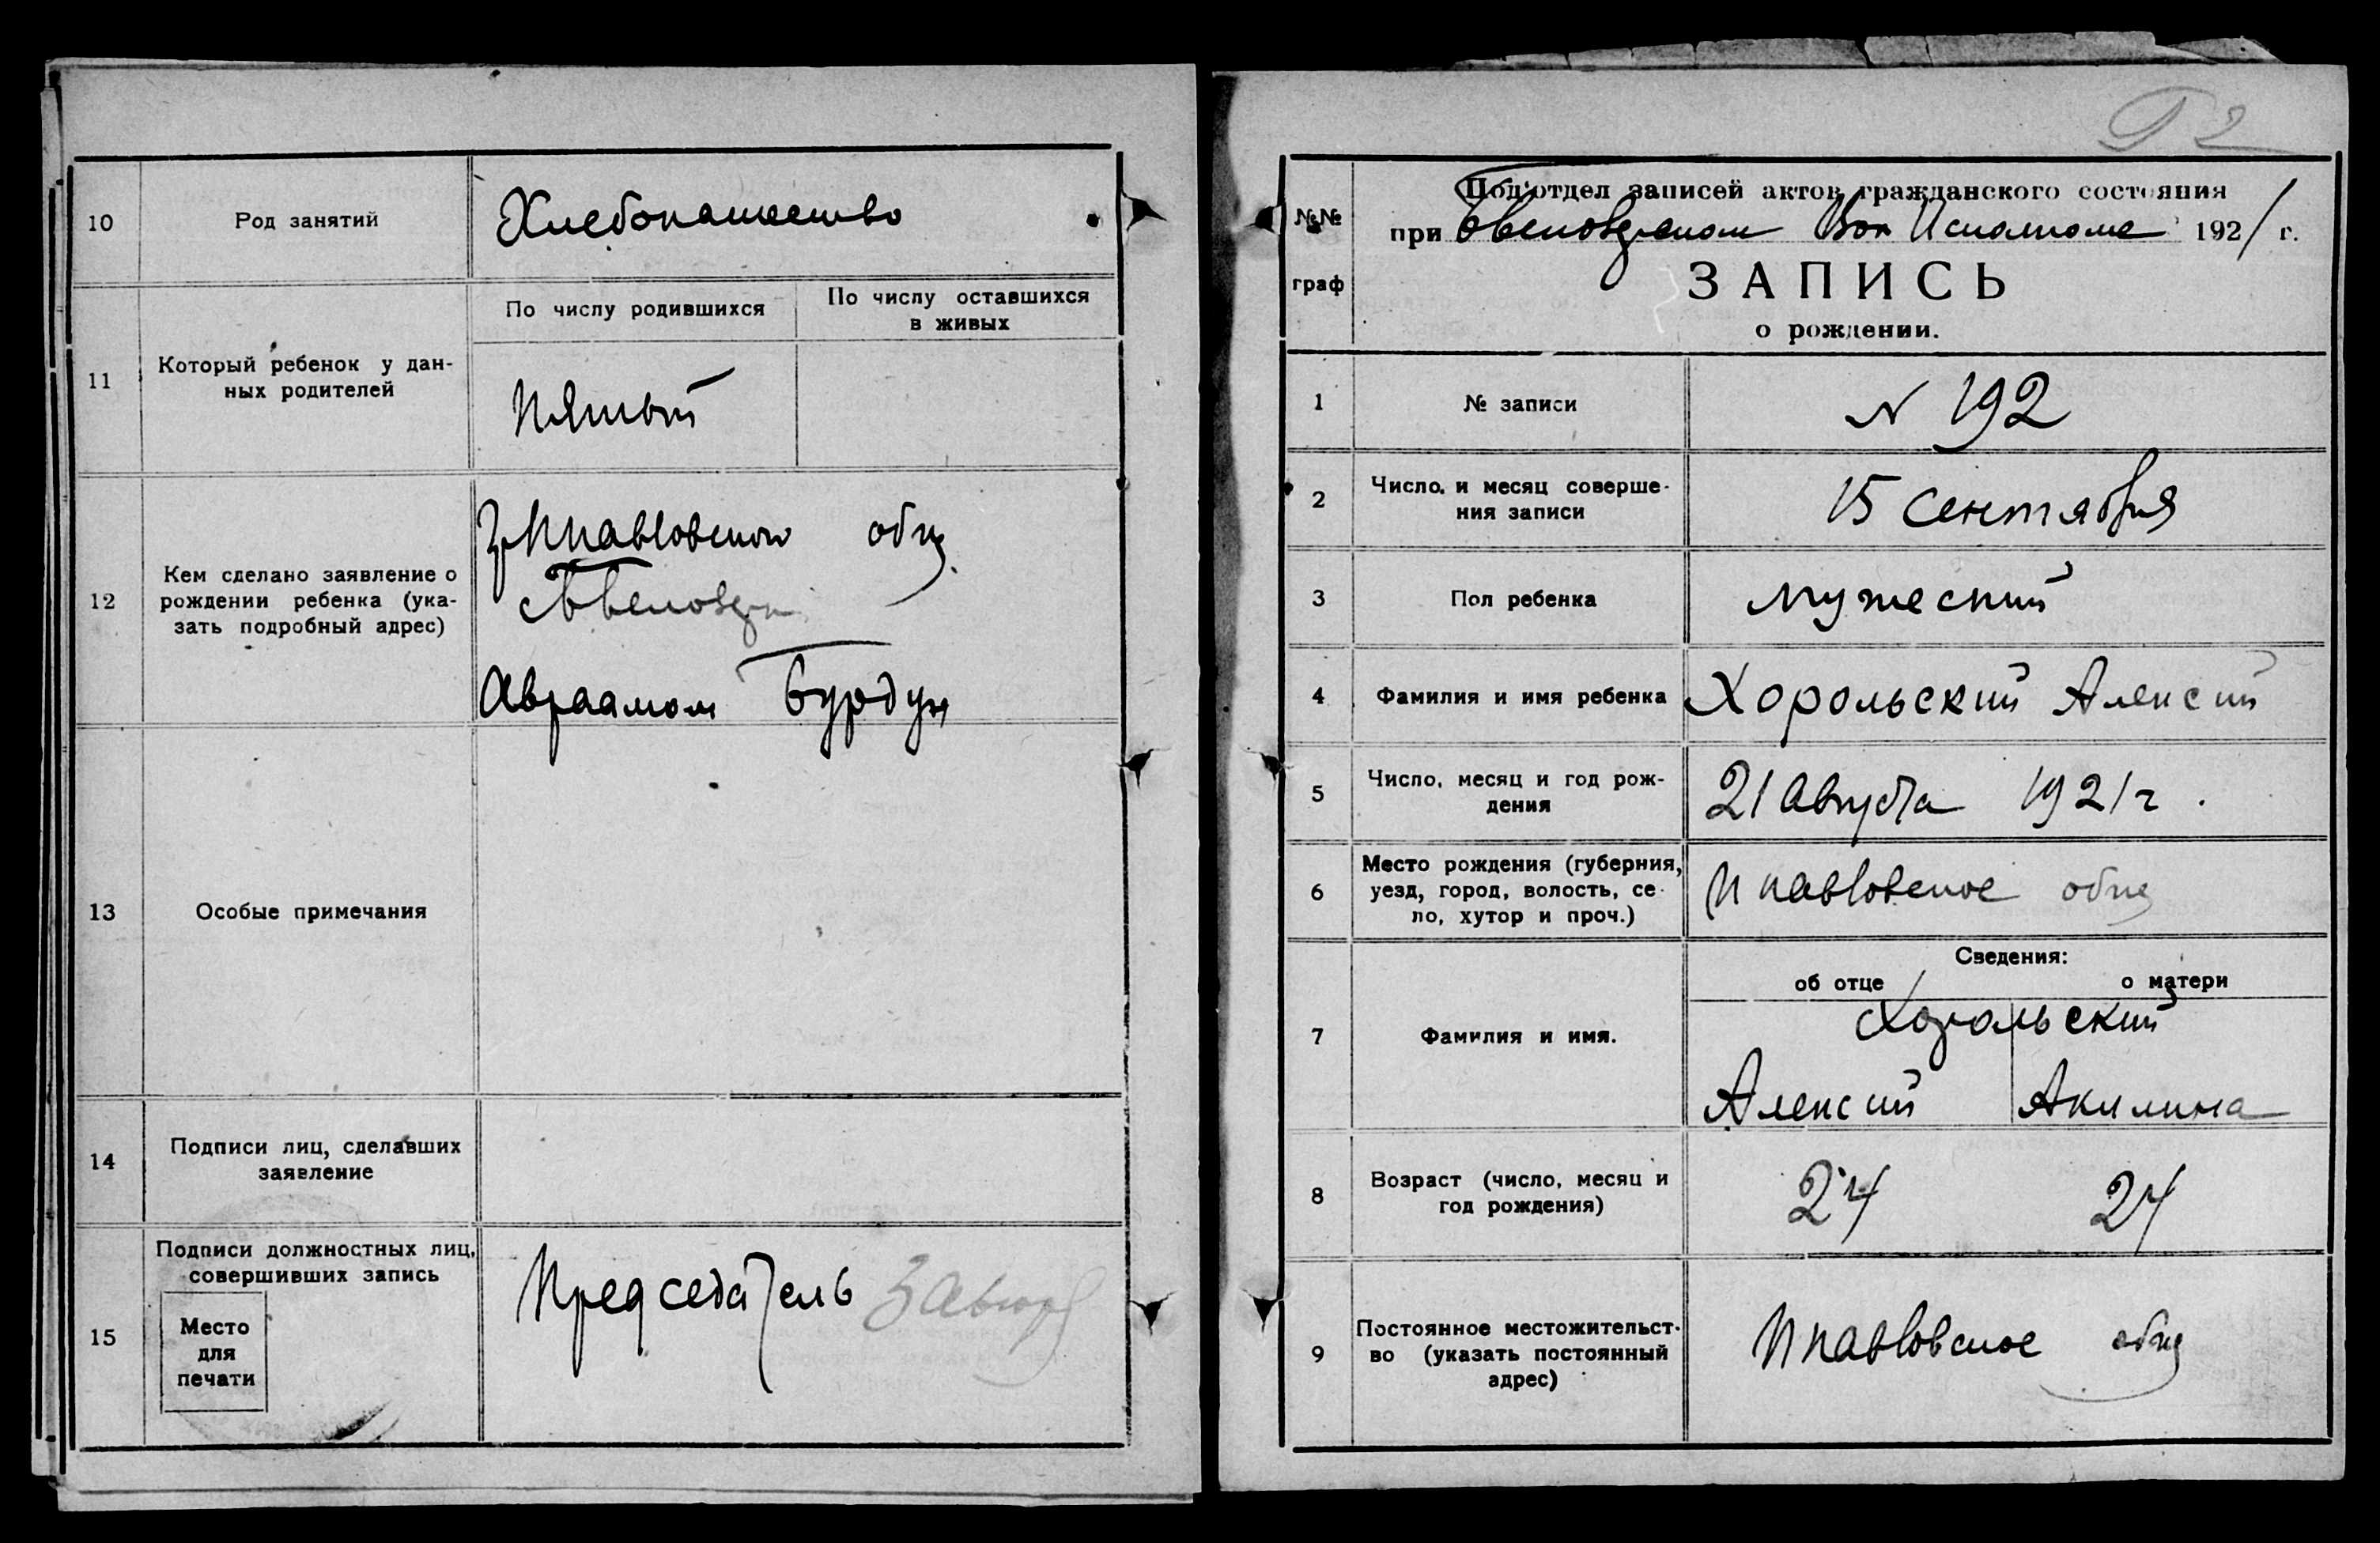 10
Род занятий
Хлебопашество
11
Который ребенок у дан-
ных родителей
По числу родившихся
По числу оставшихся
в живых
пятый
12
Кем сделано заявление о
рождении ребенка (ука-
зать подробный адрес)
общ.
Авраамом Бурдун
13
Особые примечания
14
Подписи лиц, сделавших
заявление
15
Подписи должностных лиц,
совершивших запись
Место
для
печати
Председатель
№№
граф
Под'отдел записей актов гражданского состояния
при Вол Исполкоме 1921 г.
ЗАПИСЬ
о рождении.
1
№ записи
N 192
2
Число, и месяц соверше-
ния записи
15 сентября
3
Пол ребенка
мужеский
4
Фамилия и имя ребенка
Хорольский Алексий
5
Число, месяц и год рож-
дения
21 Августа 1921 г.
6
Место рождения (губерния,
уезд, город, волость, се-
ло, хутор и проч.)
Ппавловское общ
7
Фамилия и имя.
Сведения:
об отце о матери
Хорольский
Алексий Акилина
8
Возраст (число, месяц и
год рождения)
24 24
9
Постоянное местожительст-
во (указать постоянный
адрес)
Ппавловское общ